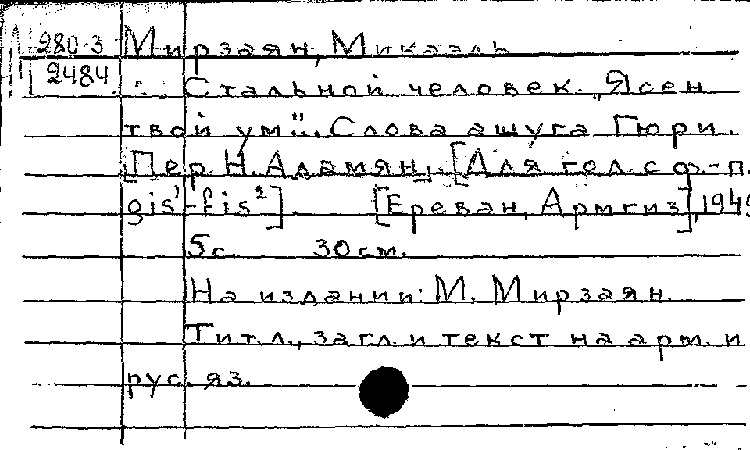 280-3 Мирзаян, Микаэль
2484 Стальной человек. „Ясен
твой ум"... Слова ашуга Гюри.
[Пер. Н. Адамян]. [Для гол. с ф.-п.
gis¹-fis²] [Ереван, Армгиз], 1945
5с 30 см.
На издании: М. Мирзаян.
Титл., загл. и текст на арм. и
рус. яз.